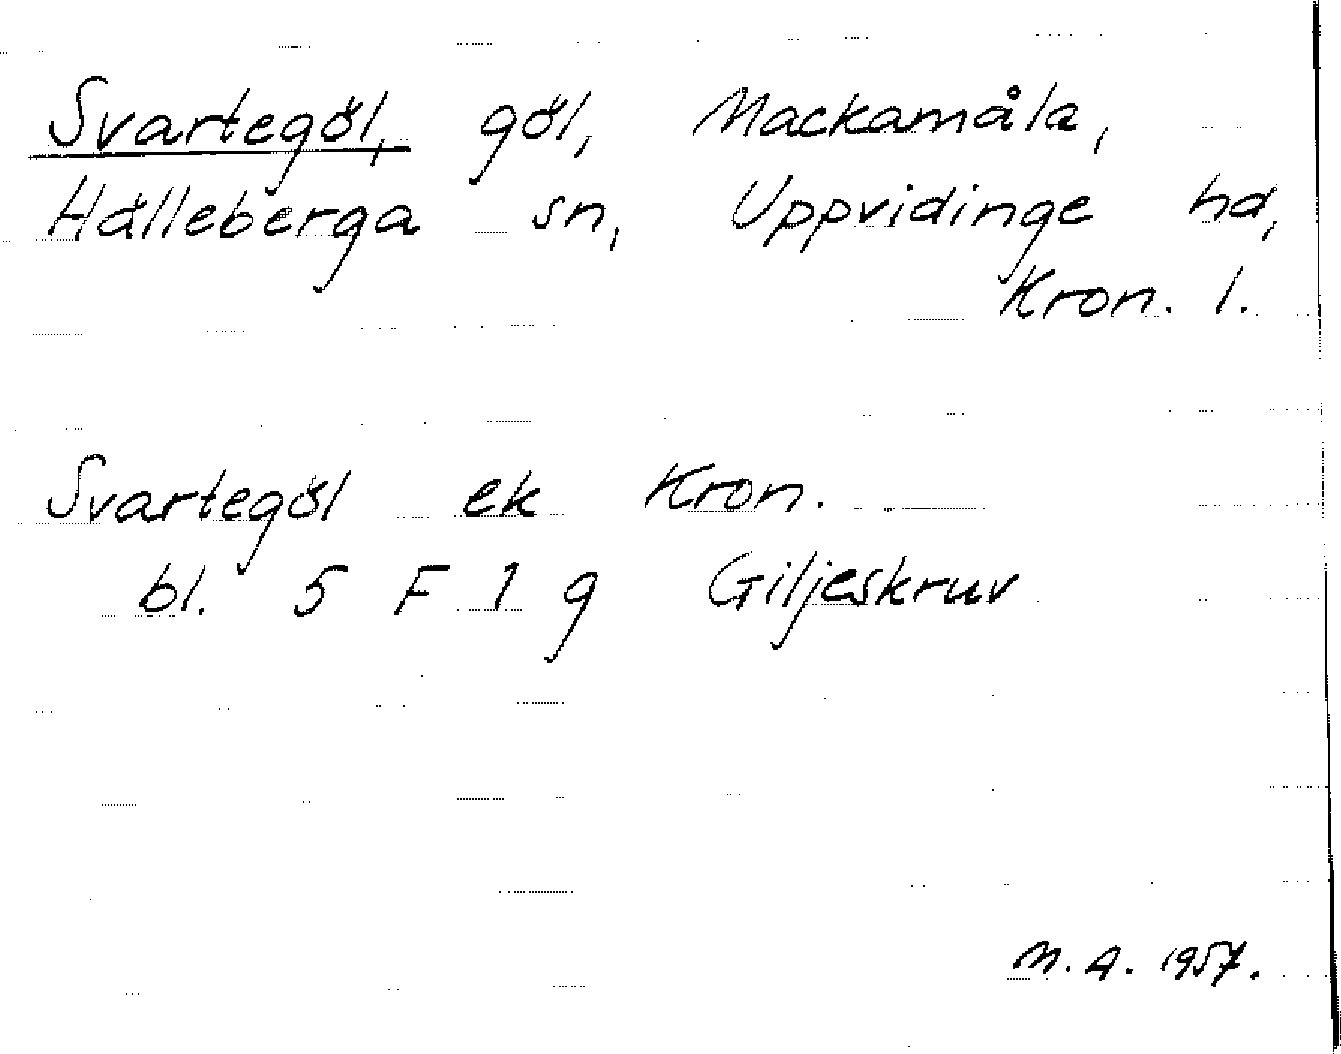 Svartegöl, göl, Mackamåla,
Hälleberga sn, Uppvidinge hd,
Kron. l.
Svartegöl ek Kron.
bl. 5 F 1 g Giljeskruv
M. A. 1957.